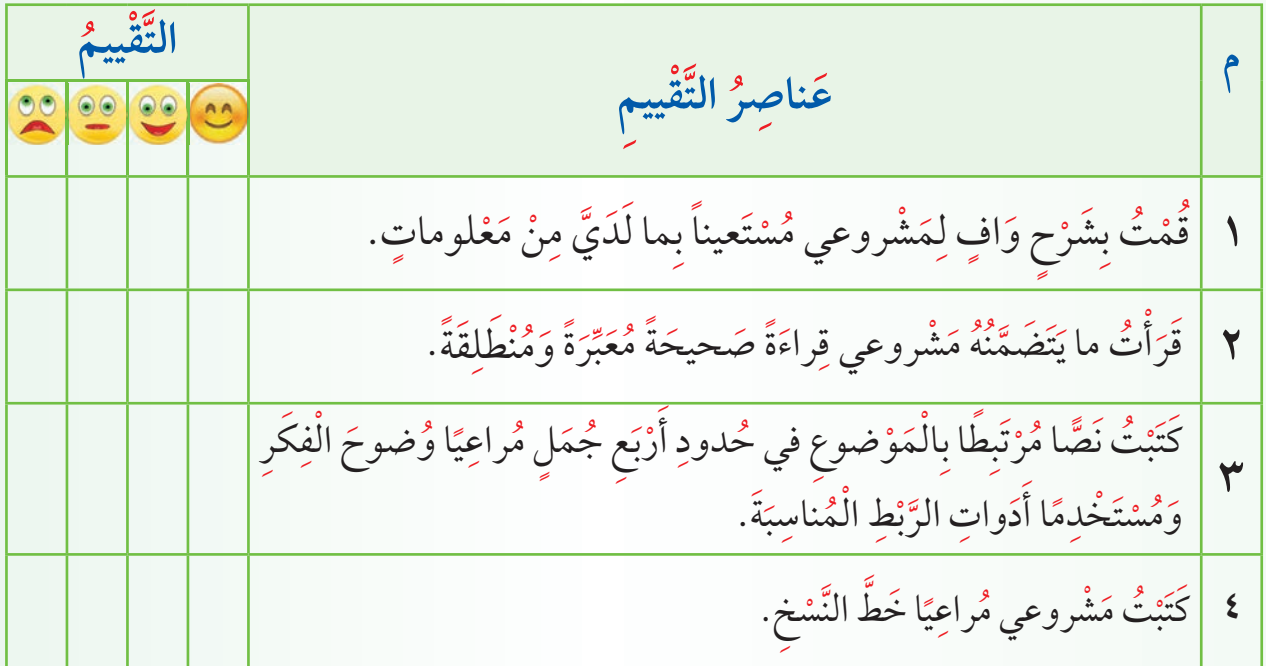 م
عَناصِرُ التَّقْييمِ
التَّقْييمُ
١ قُمْتُ بِشَرْحٍ وَافٍ لِمَشْروعي مُسْتَعيناً بِما لَدَيَّ مِنْ مَعْلوماتٍ.
٢ قَرَأْتُ ما يَتَضَمَّنُهُ مَشْروعي قِراءَةً صَحيحَةً مُعَبِّرَةً وَمُنْطَلِقَةً.
٣ كَتَبْتُ نَصًّا مُرْتَبِطًا بِالْمَوْضوعِ في حُدودِ أَرْبَعِ جُمَلٍ مُراعِيًا وُضوحَ الْفِكَرِ
وَمُسْتَخْدِمًا أَدَواتِ الرَّبْطِ الْمُناسِبَةَ.
٤ كَتَبْتُ مَشْروعي مُراعِيًا خَطَّ النَّسْخِ.